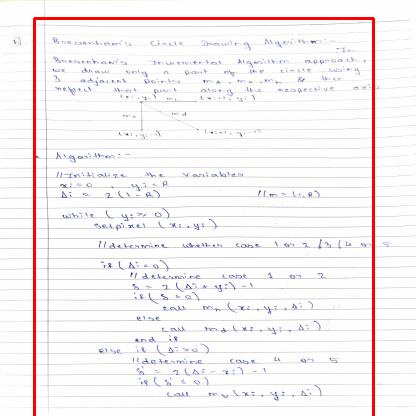 b) Bresenham's Circle Drawing Algorithm:-
In
Bresenham's Incremental Algorithm approach,
we draw only a part of the circle using
3 adjacent points md, mv, mh & then
reflect that part along the respective axis
(xi, yi) mh (xi+1, yi)
mv md
(xi, yi-1) (xi+1, yi-1)
Algorithm:-
//Initialize the variables
xi=0 , yi=R
Δi = 2(1-R) //m=(1,R)
while (yi ≥ 0)
setpixel (xi, yi)
//determine whether case 1 or 2 / 3 / 4 or 5
if (Δi<0)
//determine case 1 or 2
δ = 2(Δi + yi) - 1
if (δ ≤ 0)
call mh (xi, yi, Δi)
else
call md (xi, yi, Δi)
end if
else if (Δi>0)
//determine case 4 or 5
δ' = 2(Δi - xi) - 1
if (δ' ≤ 0)
call mv (xi, yi, Δi)